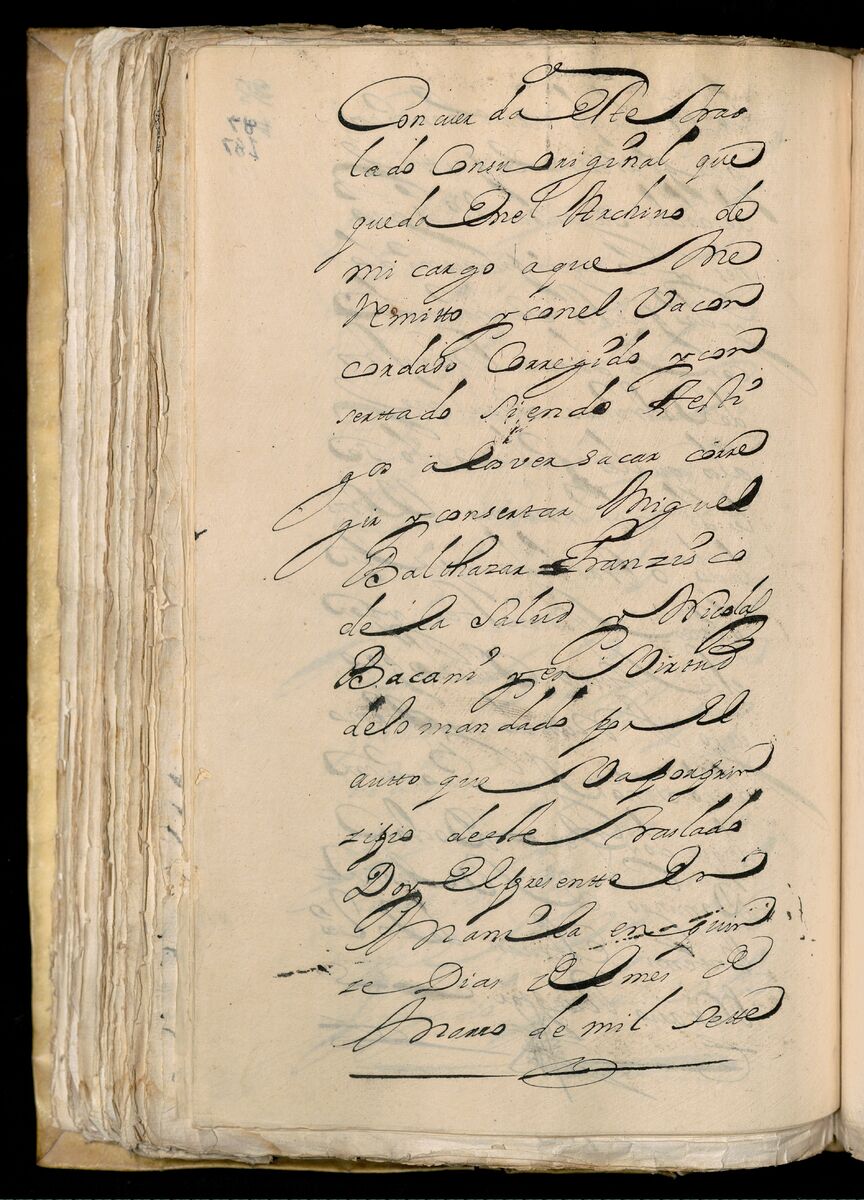 Concuerda Este tras
lado Consu original que
queda Enel Archivo de
mi cargo aque Me
Remitto y conel Va con
cordado Corregido y con
serttado siendo testi
gos a loover sacar corre
gir y consertar Miguel
Balthazar Franzisco
de la Salud y Nicolas
Bacani y en Virtud
delo mandado por El
autto que Va por prin
zipio deeste traslado
Doy El presentte En
Manila en quin
ze Dias del mes de
Marzo de mil sette